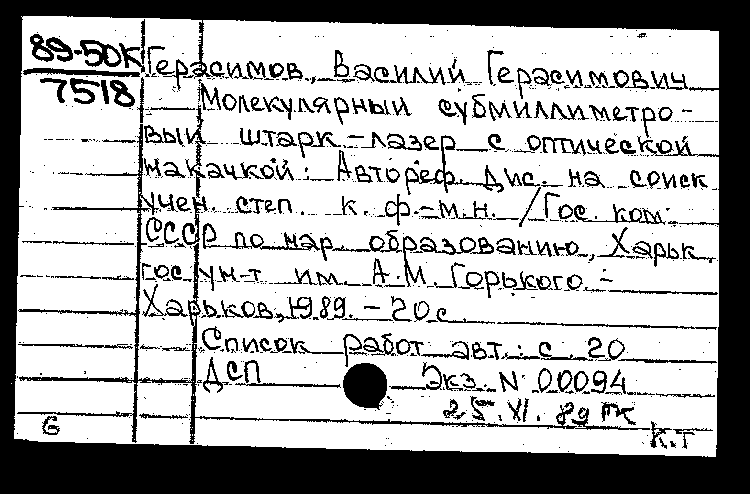 89-50К
7518
Герасимов, Василий Герасимович
Молекулярный субмиллиметро-
вый штарк-лазер с оптической
накачкой: Автореф. дис. на соиск
учен. степ. к. ф.-м.н. /Гос. ком.
СССР по нар. образованию, Харьк.
гос ун-т им. А.М. Горького.-
Харьков, 1989. - 20с.
Список работ авт.: с. 20
ДСП Экз. N 00094
25.XI.89 ГК
К.Т
6